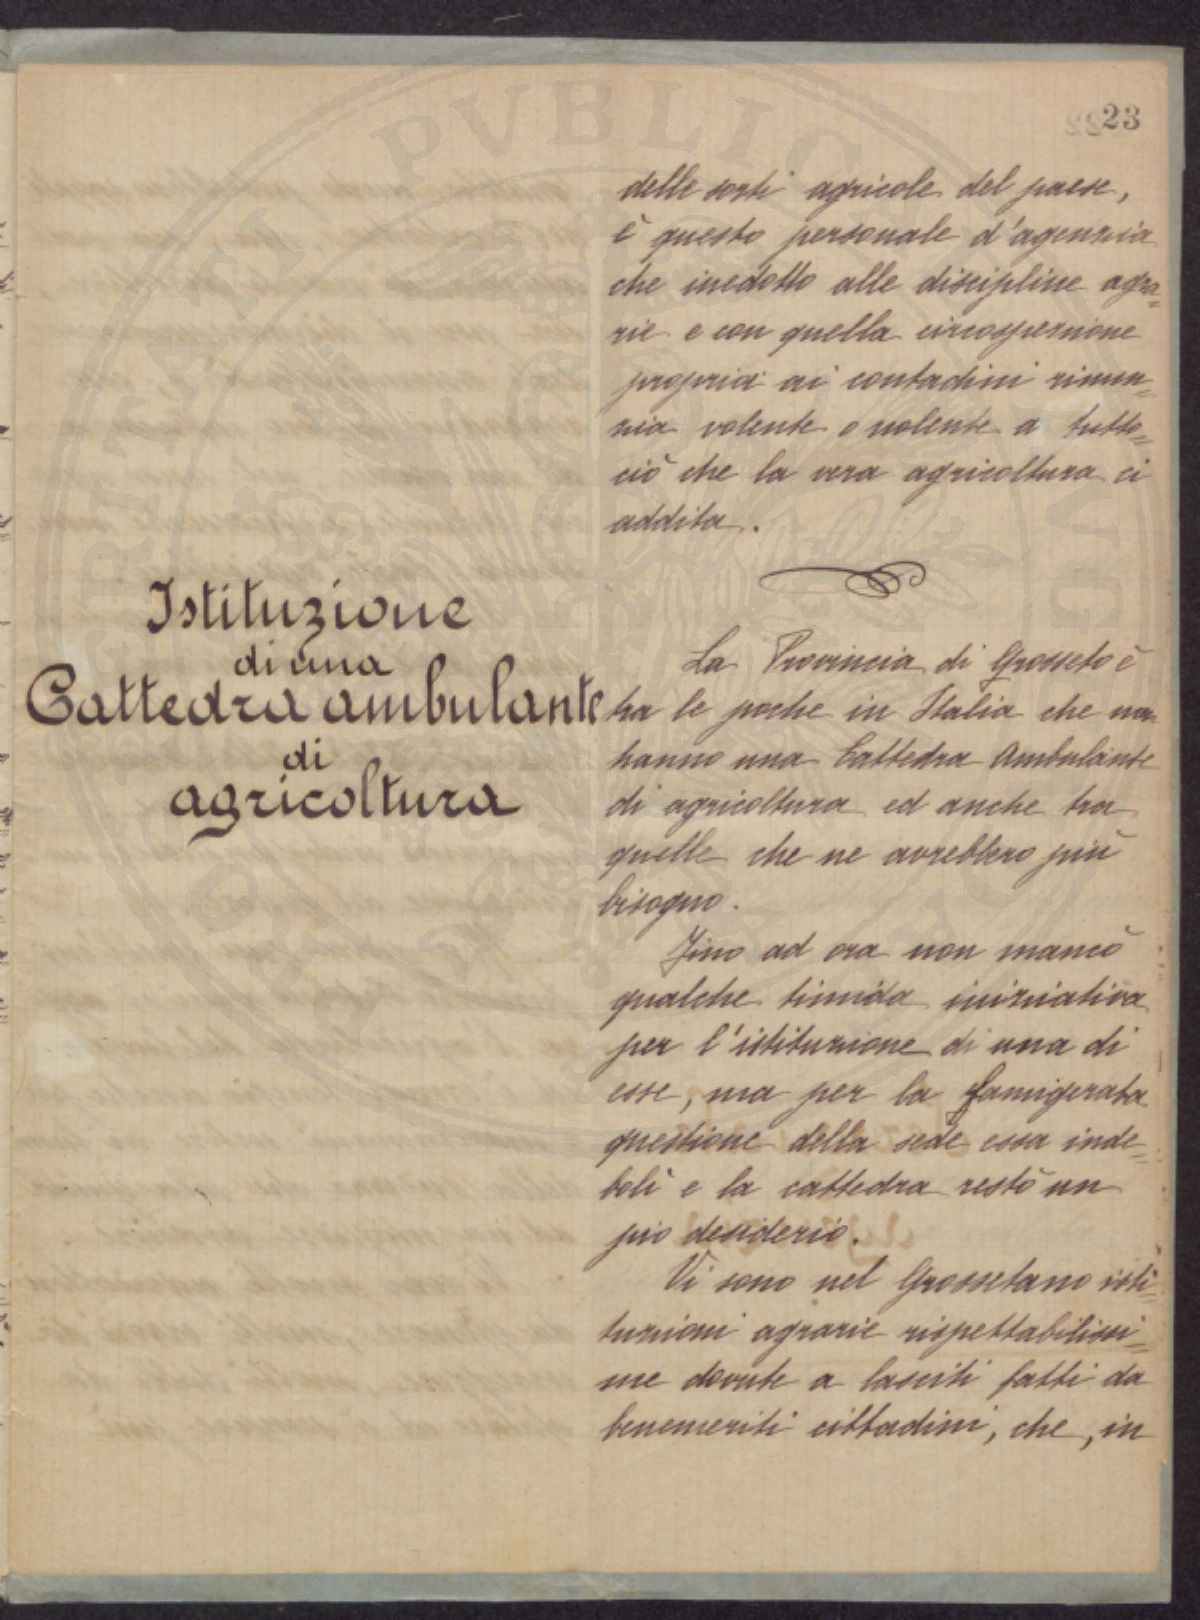 23
delle sorti agricole del paese,
è questo personale d'agenzia
che inedotto alle discipline agra=
rie e con quella circospezione
propria ai contadini rinun=
zia volente o nolente a tutto=
ciò che la vera agricoltura ci
addita.
Istituzione
di una
Cattedra ambulante
di
agricoltura
La Provincia di Grosseto è
tra le poche in Italia che non
hanno una Cattedra Ambulante
di agricoltura ed anche tra
quelle che ne avrebbero più
bisogno.
Fino ad ora non mancò
qualche timida iniziativa
per l'istituzione di una di
esse, ma per la famigerata
questione della sede essa inde=
bolì e la cattedra restò un
pio desiderio.
Vi sono nel Grossetano isti=
tuzioni agrarie rispettabilissi=
me dovute a lasciti fatti da
benemeriti cittadini, che, in